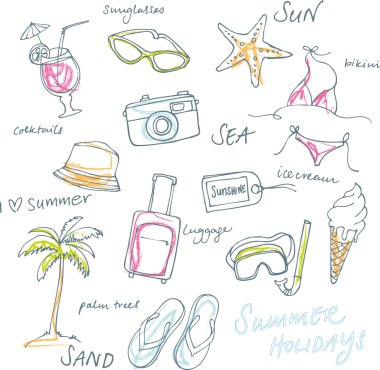 sunglasses
SUN
bikini
cocktails
SEA
icecream
I ♡ summer
SUNSHINE
luggage
palm trees
SUMMER
HOLIDAYS
SAND